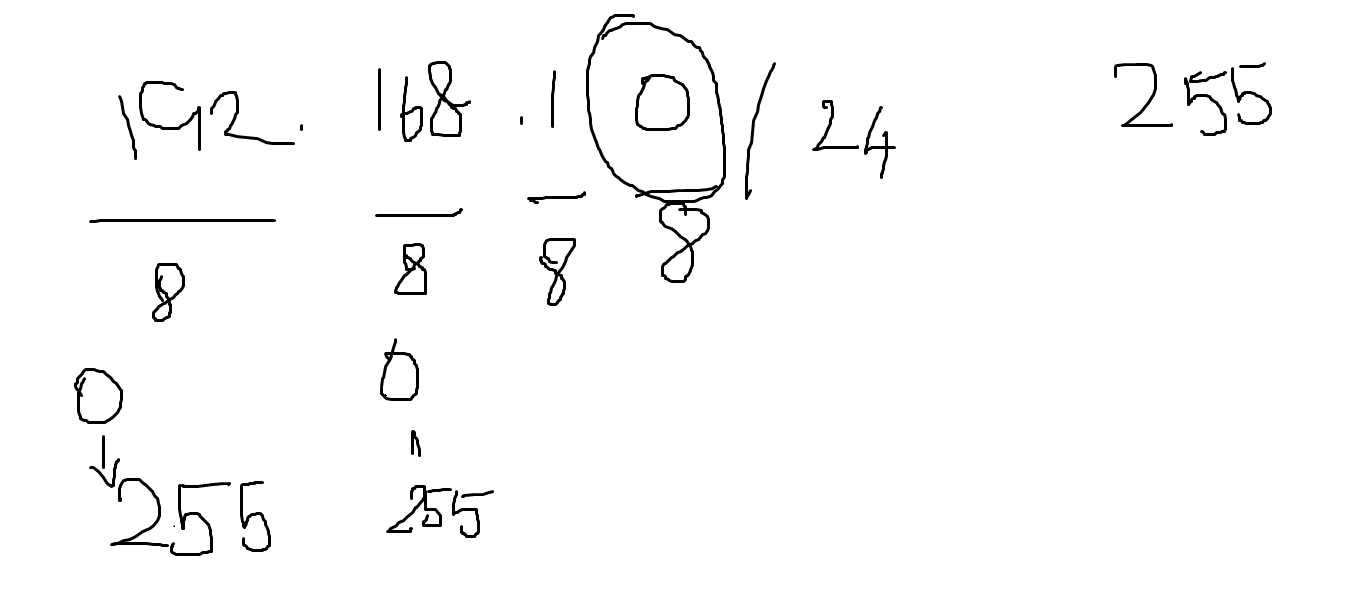 192. 168 .1 0 / 24 255
8 8 8 8
0 0
255 255